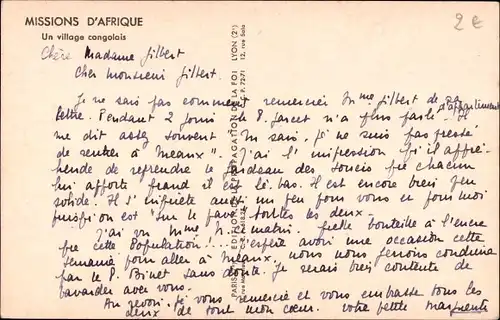 MISSIONS D'AFRIQUE
Un village congolais
2 €
Chère Madame Gilbert
Cher Monsieur Gilbert.
Je ne sais pas comment remercier Mme Gilbert de sa
lettre. Pendant 2 jours le P. n'a plus parlé d'appartement. Il
me dit assez souvent "Tu sais, je ne suis pas pressé
de rentrer à Meaux". J'ai l'impression qu'il appré-
hende de reprendre le fardeau des soucis que chacun
lui apporte quand il est là bas. Il est encore bien peu
solide. Il s'inquiète aussi un peu pour vous et pour moi
puisqu'on est "sur le pavé" toutes les deux.
J'ai vu Mme N. ce matin. Quelle bouteille à l'encre
que cette Population!... Peut-être avoir une occasion cette
semaine pour aller à Meaux, nous nous ferions conduire
par le P. Binet sans doute. Je serais très contente de
bavarder avec vous.
Au revoir. Je vous remercie et vous embrasse tous les
deux de tout mon cœur. Votre petite Marguerite
PARIS ÉDITIONS PROPAGATION DE LA FOI LYON (2e)
12, rue Sala